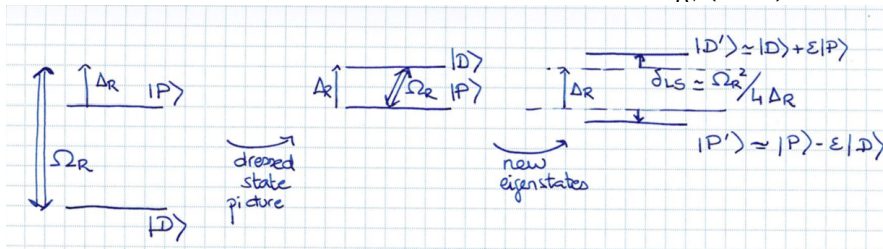 Δ_R |P⟩
Ω_R
|D⟩
dressed
state
picture
Δ_R |D⟩
Ω_R |P⟩
new
eigenstates
|D'⟩ ≃ |D⟩ + ε|P⟩
Δ_R δ_LS ≃ Ω_R²/4Δ_R
|P'⟩ ≃ |P⟩ - ε|D⟩